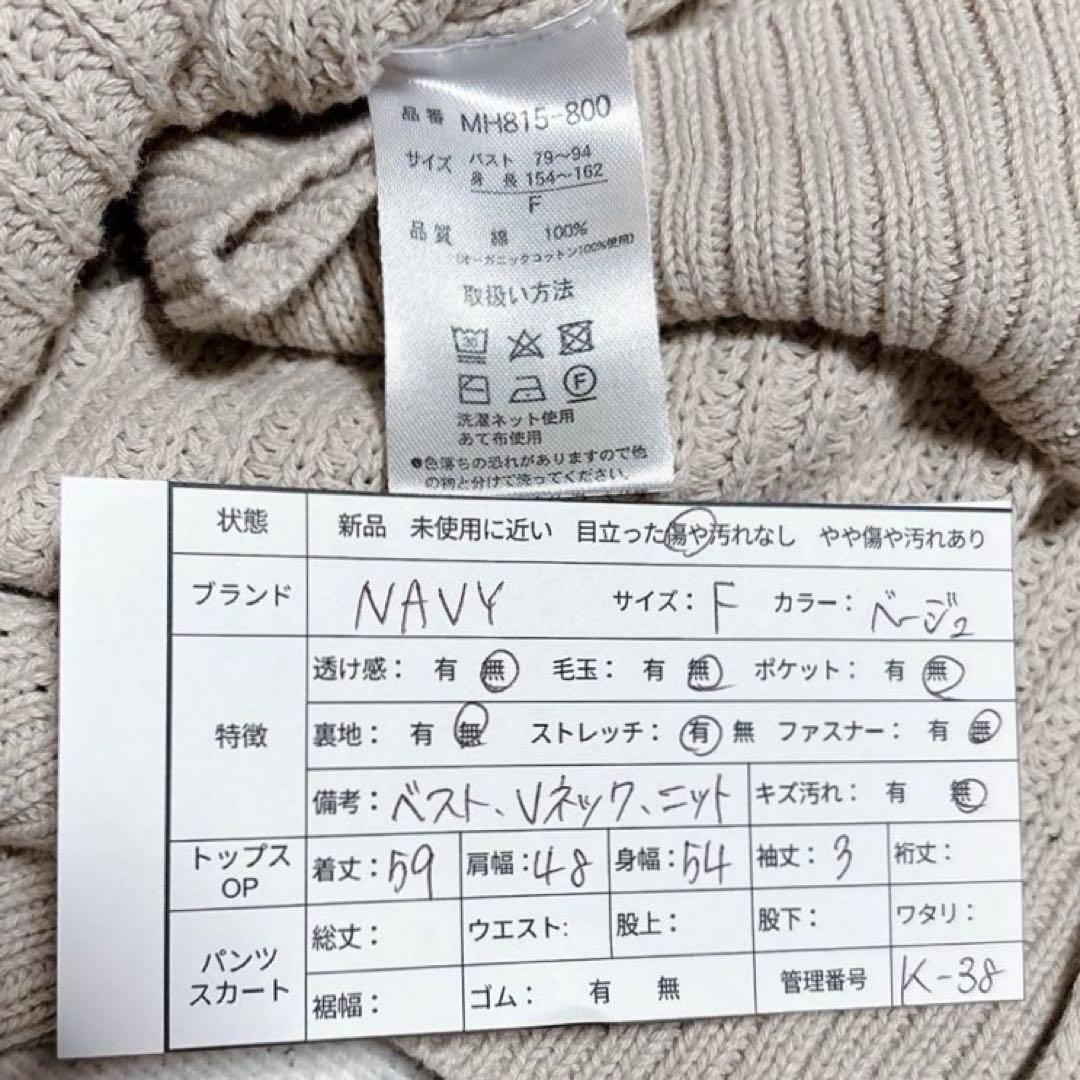 品番 MH815-800
サイズ バスト 79〜94
身長 154〜162
F
品質 綿 100%
(オーガニックコットン100%使用)
取扱い方法
30
F
洗濯ネット使用
あて布使用
●色落ちの恐れがありますので他
の物と分けて洗ってください。
状態 新品 未使用に近い 目立った傷や汚れなし やや傷や汚れあり
ブランド NAVY サイズ: F カラー: ベージュ
特徴 透け感: 有 無 毛玉: 有 無 ポケット: 有 無
裏地: 有 無 ストレッチ: 有 無 ファスナー: 有 無
備考: ベスト、Vネック、ニット キズ汚れ: 有 無
トップス OP 着丈: 59 肩幅: 48 身幅: 54 袖丈: 3 裄丈:
パンツ スカート 総丈: ウエスト: 股上: 股下: ワタリ:
裾幅: ゴム: 有 無 管理番号 K-38